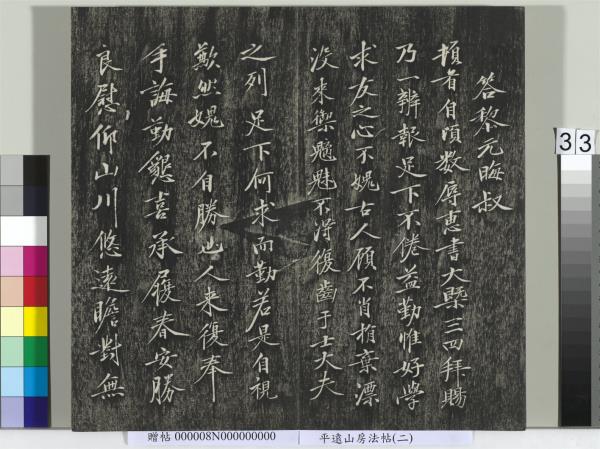 答黎元晦叔
頓首自頃数辱惠書大槩三四拜賜
乃一辨報足下不倦益勤惟好學
求友之心不媿古人顧不肖捐棄漂
没来禦魑魅不得復齒于士大夫
之列 足下何求而勤若是自視
歉然媿不自勝也人来復奉
手誨勤懇喜承履春安勝
良慰仰山川悠遠瞻對無
33
贈帖 000008N000000000 平遠山房法帖(二)